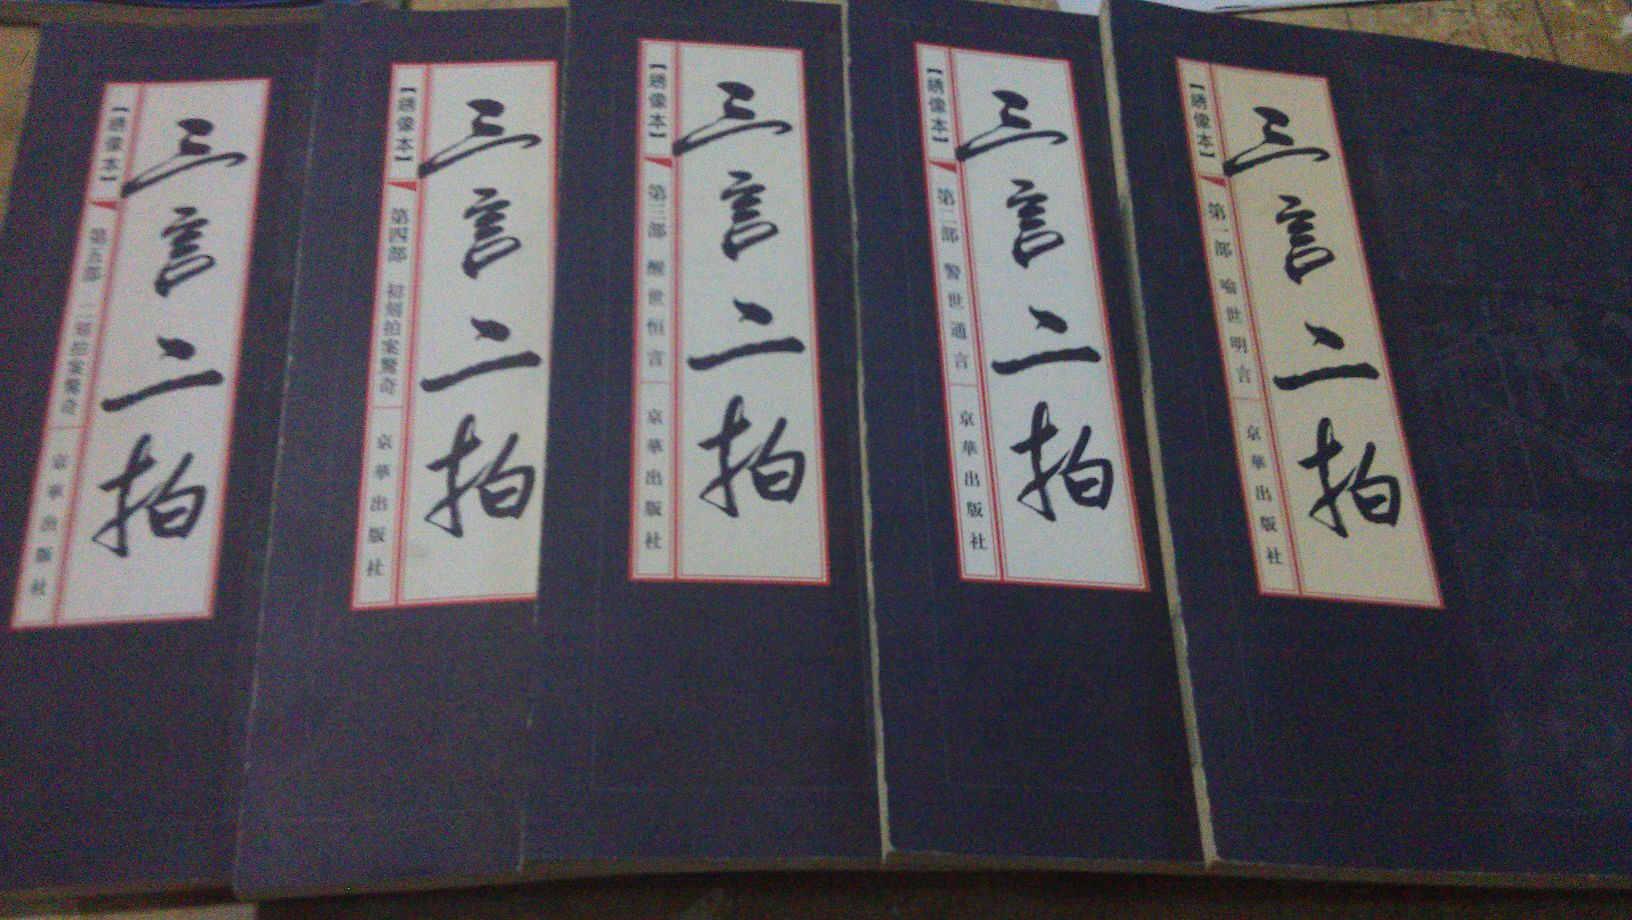 【绣像本】
第一部 喻世明言
京華出版社
三言二拍
【绣像本】
第二部 警世通言
京華出版社
三言二拍
【绣像本】
第三部 醒世恒言
京華出版社
三言二拍
【绣像本】
第四部 初刻拍案驚奇
京華出版社
三言二拍
【绣像本】
第五部 二刻拍案驚奇
京華出版社
三言二拍